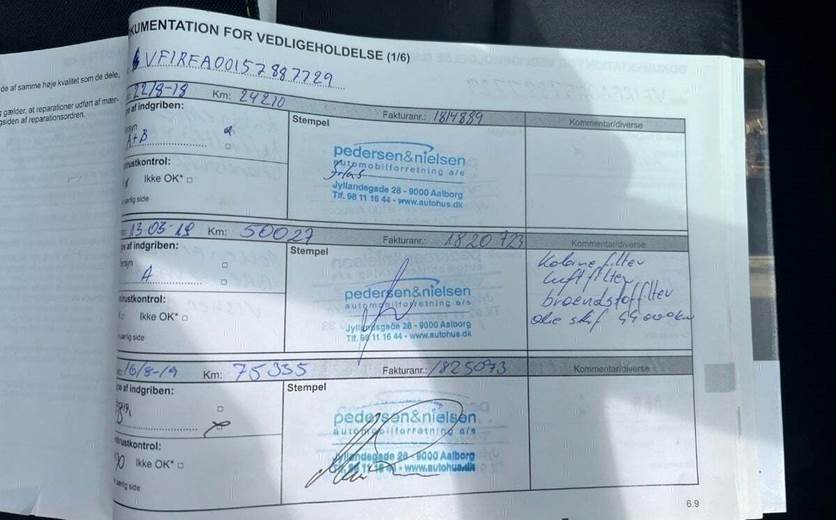 de af samme høje kvalitet som de dele,
gælder, at reparationer udført af mær-
gsiden af reparationsordren.
KUMENTATION FOR VEDLIGEHOLDELSE (1/6)
VF1RFA00157887729
22/8-18 Km: 24210 Fakturanr.: 1814889 Kommentar/diverse
af indgriben: Stempel
A+B
pedersen&nielsen
automobilforretning a/s
Jyllandsgade 28 - 9000 Aalborg
Tlf. 98 11 16 44 - www.autohus.dk
rustkontrol:
Ikke OK*
særlig side
13-03-19 Km: 50027 Fakturanr.: 1820723 Kommentar/diverse
af indgriben: Stempel
A
Kabinefilter
luftfilter
brændstoffilter
olie skif 44000km
pedersen&nielsen
automobilforretning a/s
Jyllandsgade 28 - 9000 Aalborg
Tlf. 98 11 16 44 - www.autohus.dk
trustkontrol:
Ikke OK*
særlig side
16/8-19 Km: 75335 Fakturanr.: 1825093 Kommentar/diverse
pe af indgriben: Stempel
pedersen&nielsen
automobilforretning a/s
Jyllandsgade 28 - 9000 Aalborg
Tlf. 98 11 16 44 - www.autohus.dk
trustkontrol:
Ikke OK*
særlig side
6.9